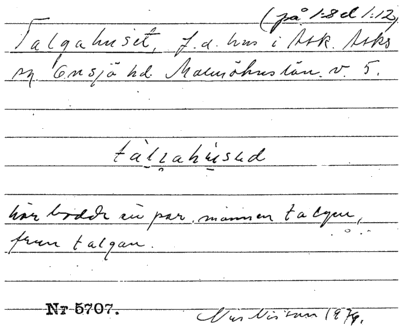 (på 1:8 d 1:12)
Talgahuset, f.d. hus i Ask. Asks
sn Onsjö hd Malmöhus län. v. 5.
tàlgahúsed
här bodde en par. mannen talgen,
frun talgan.
Nr 5707.
1979.